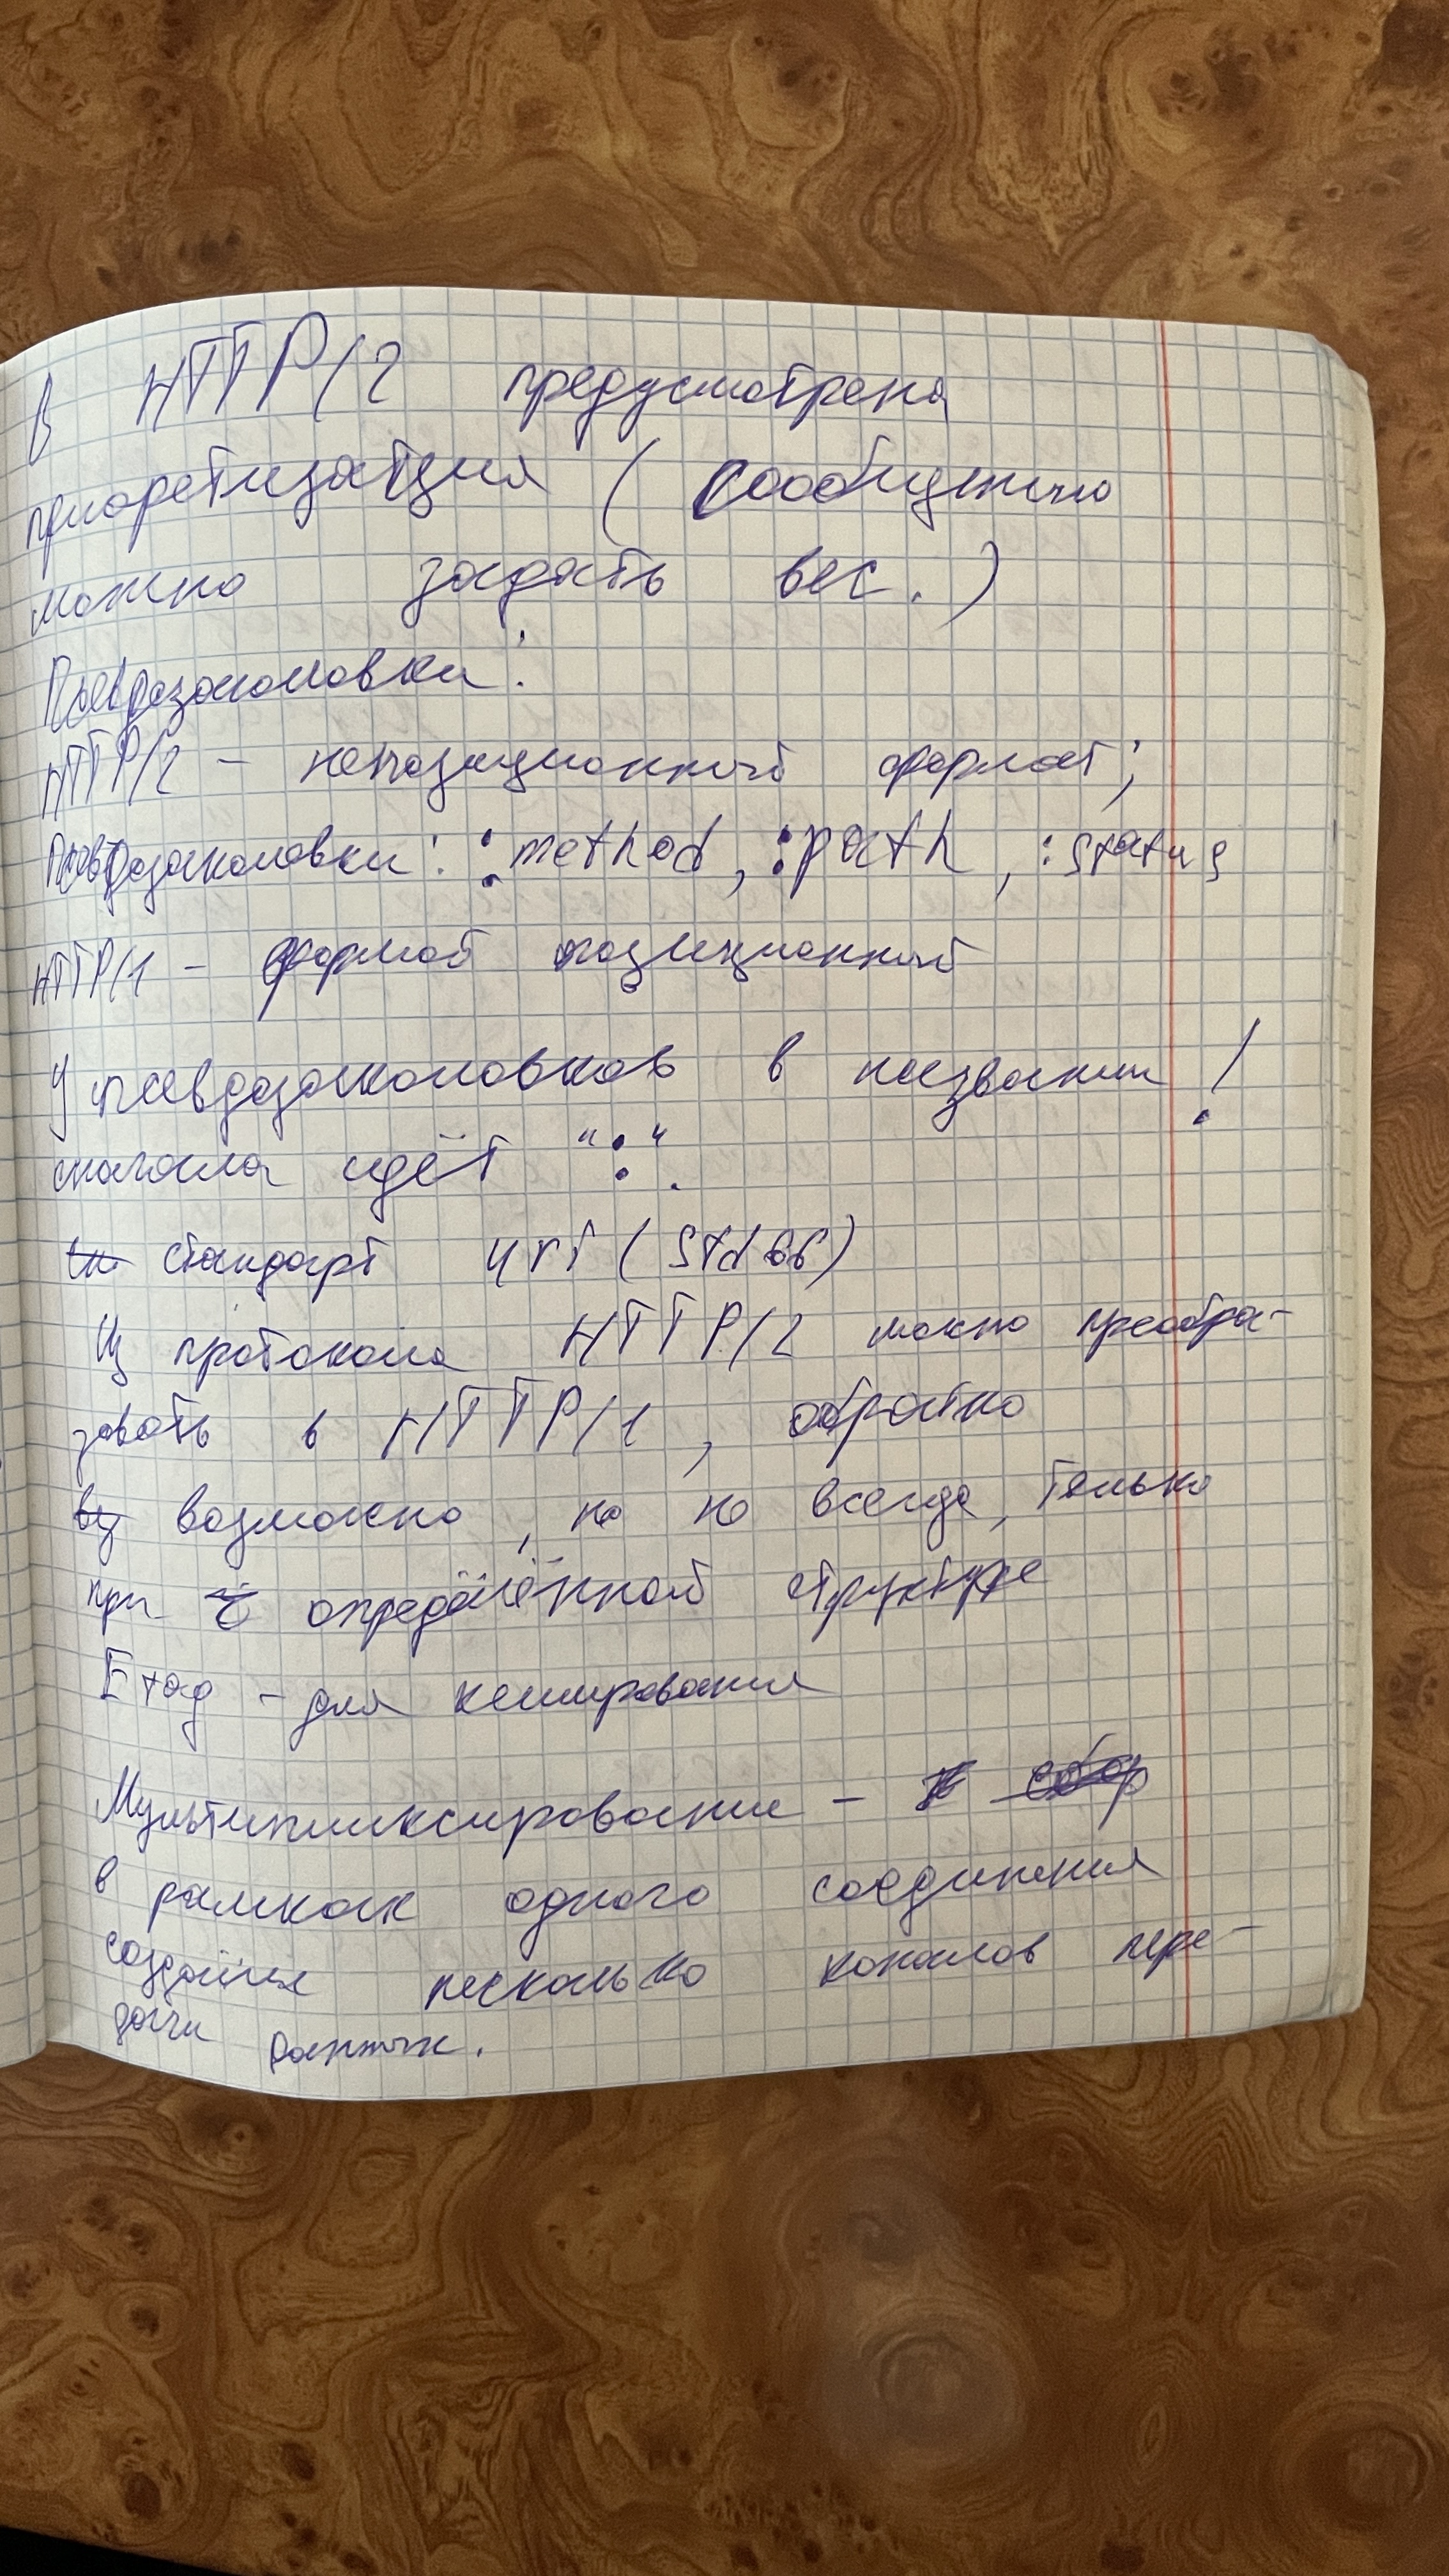 В HTTP/2 предусмотрена
приоретизатция (сообщению
можно задать вес.)
Псевдозаголовки:
HTTP/2 - непозиционный формат;
Псевдозаголовки: :method, :path, :status
HTTP/1 - формат позиционный
У псевдозаголовков в названии !
сначала идёт ":".
стандарт uri (std 66)
Из протокола HTTP/2 можно преобра-
зовать в HTTP/1, обратно
возможно, но не всегда, только
при определённой структуре
Etag - для кеширования
Мультипликсирование -
в рамках одного соединения
создаётся несколько каналов пере-
дачи данных.